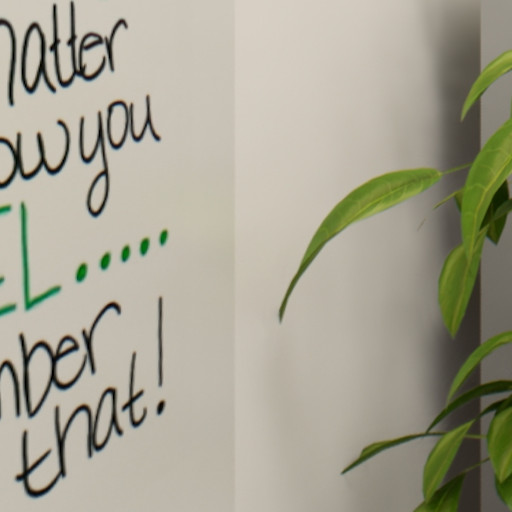 matter
ow you
EL.....
mber
that!